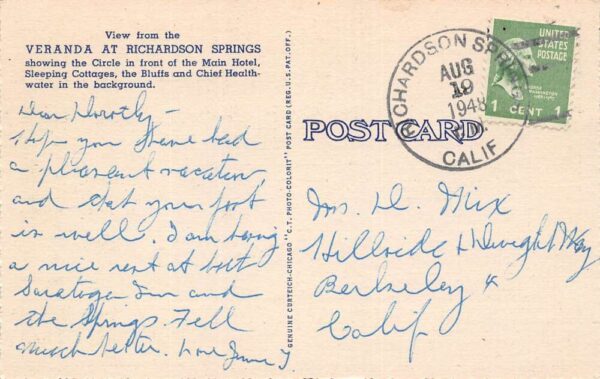 View from the
VERANDA AT RICHARDSON SPRINGS
showing the Circle in front of the Main Hotel,
Sleeping Cottages, the Bluffs and Chief Health-
water in the background.
Dear Dorothy –
Hope you have had
a pleasant vacation
and that your foot
is well. I am having
a nice rest at both
Saratoga Inn and
the Springs. Feel
much better. Love
GENUINE CURTEICH-CHICAGO "C.T. PHOTO-COLORIT" POST CARD (REG. U.S. PAT. OFF.)
POST CARD
RICHARDSON SPRINGS
AUG
19
1948
CALIF
UNITED STATES
POSTAGE
GEORGE
WASHINGTON
1 CENT 1
Mrs. D. Mix
Hillside & Dwight Way
Berkeley 4
Calif